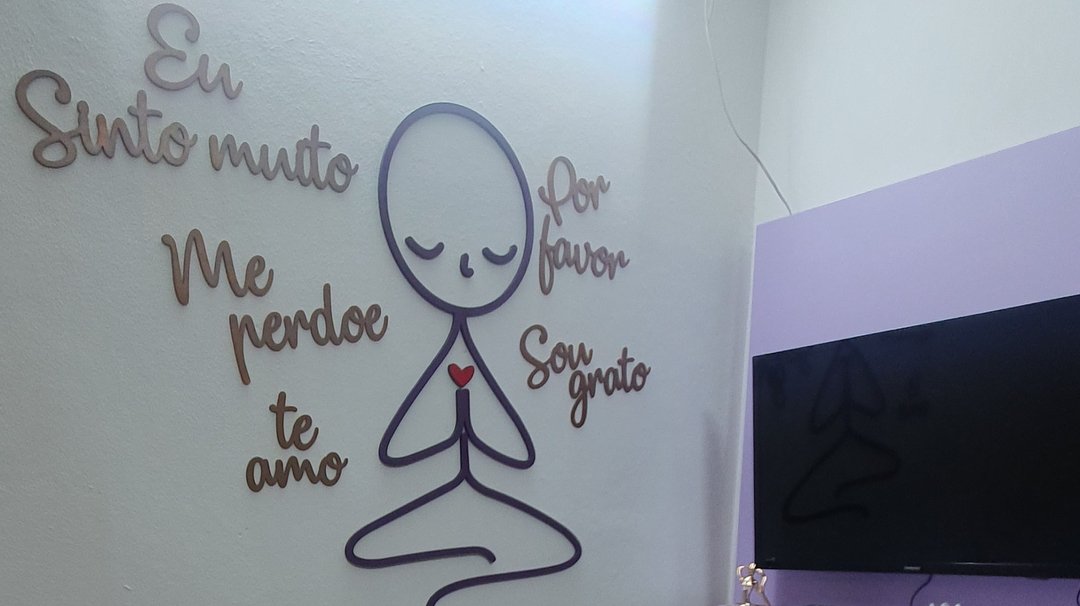 Eu
Sinto muito
Me
perdoe
te
amo
Por
favor
Sou
grato